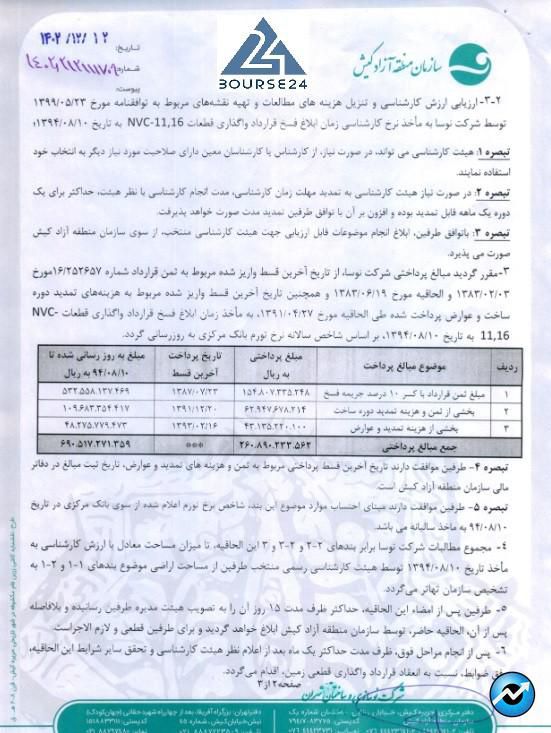 سازمان منطقه آزاد کیش
BOURSE24
تاریخ: ۱۴۰۲/۱۲/۱۲
شماره:
پیوست:
۳-۲-ارزیابی ارزش کارشناسی و تنزیل هزینه های مطالعات و تهیه نقشه‌های مربوط به توافقنامه مورخ ۱۳۹۹/۰۵/۲۳
توسط شرکت نوسا به مأخذ نرخ کارشناسی زمان ابلاغ فسخ قرارداد واگذاری قطعات NVC-11,16 به تاریخ ۱۳۹۴/۰۸/۱۰؛
تبصره ۱: هیئت کارشناسی می تواند، در صورت نیاز، از کارشناس یا کارشناسان معین دارای صلاحیت مورد نیاز دیگر به انتخاب خود
استفاده نمایند.
تبصره ۲: در صورت نیاز هیئت کارشناسی به تمدید مهلت زمان کارشناسی، مدت انجام کارشناسی با نظر هیئت، حداکثر برای یک
دوره یک ماهه قابل تمدید بوده و افزون بر آن با توافق طرفین تمدید مدت صورت خواهد پذیرفت.
تبصره ۳: باتوافق طرفین، ابلاغ انجام موضوعات قابل ارزیابی جهت هیئت کارشناسی منتخب، از سوی سازمان منطقه آزاد کیش
صورت می پذیرد.
۳-مقرر گردید مبالغ پرداختی شرکت نوسا، از تاریخ آخرین قسط واریز شده مربوط به ثمن قرارداد شماره ۱۶/۲۵۲۶۵۷مورخ
۱۳۸۳/۰۲/۰۳ و الحاقیه مورخ ۱۳۸۳/۰۶/۱۹ و همچنین تاریخ آخرین قسط واریز شده مربوط به هزینه‌های تمدید دوره
ساخت و عوارض پرداخت شده طی الحاقیه مورخ ۱۳۹۱/۰۴/۲۷، به مأخذ زمان ابلاغ فسخ قرارداد واگذاری قطعات NVC-
11,16 به تاریخ ۱۳۹۴/۰۸/۱۰، بر اساس شاخص سالانه نرخ تورم بانک مرکزی به روزرسانی گردد.
ردیف موضوع مبالغ پرداخت مبلغ پرداختی به ریال تاریخ پرداخت آخرین قسط مبلغ به روز رسانی شده تا ۹۴/۰۸/۱۰ به ریال
۱ مبلغ ثمن قرارداد با کسر ۱۰ درصد جریمه فسخ ۱۵۴.۸۰۷.۳۳۵.۲۴۸ ۱۳۸۷/۰۷/۲۳ ۵۳۲.۵۵۸.۱۳۷.۴۶۹
۲ بخشی از ثمن و هزینه تمدید دوره ساخت ۶۲.۹۴۷.۶۷۸.۲۱۴ ۱۳۹۱/۱۲/۲۰ ۱۰۹.۶۸۳.۳۵۴.۴۱۷
۳ بخشی از هزینه تمدید و عوارض ۴۳.۱۳۵.۲۲۰.۱۰۰ ۱۳۹۳/۰۲/۱۶ ۴۸.۲۷۵.۷۷۹.۴۷۳
جمع مبالغ پرداختی ۲۶۰.۸۹۰.۲۳۳.۵۶۲ *** ۶۹۰.۵۱۷.۲۷۱.۳۵۹
تبصره ۴- طرفین موافقت دارند تاریخ آخرین قسط پرداختی مربوط به ثمن و هزینه های تمدید و عوارض، تاریخ ثبت مبالغ در دفاتر
مالی سازمان منطقه آزاد کیش است.
تبصره ۵- طرفین موافقت دارند مبنای احتساب موارد موضوع این بند، شاخص نرخ تورم اعلام شده از سوی بانک مرکزی در تاریخ
۹۴/۰۸/۱۰ به ماخذ سالیانه می باشد.
۴- مجموع مطالبات شرکت توسا برابر بندهای ۲-۲ و ۳-۲ و ۳ این الحاقیه، تا میزان مساحت معادل با ارزش کارشناسی به
مأخذ تاریخ ۱۳۹۴/۰۸/۱۰ توسط هیئت کارشناسی رسمی منتخب طرفین از مساحت اراضی موضوع بندهای ۱-۱ و ۲-۱ به
تشخیص سازمان تهاتر می‌گردد.
۵- طرفین پس از امضاء این الحاقیه، حداکثر ظرف مدت ۱۵ روز آن را به تصویب هیئت مدیره طرفین رسانیده و بلافاصله
پس از آن، الحاقیه حاضر، توسط سازمان منطقه آزاد کیش ابلاغ خواهد گردید و برای طرفین قطعی و لازم الاجراست.
۶- پس از انجام مراحل فوق، ظرف مدت حداکثر یک ماه بعد از اعلام نظر هیئت کارشناسی و تحقق سایر شرایط این الحاقیه،
وفق ضوابط، نسبت به انعقاد قرارداد واگذاری قطعی زمین، اقدام می‌گردد.
صفحه ۲ از ۳
شرکت نوسازی و ساختمان تهران